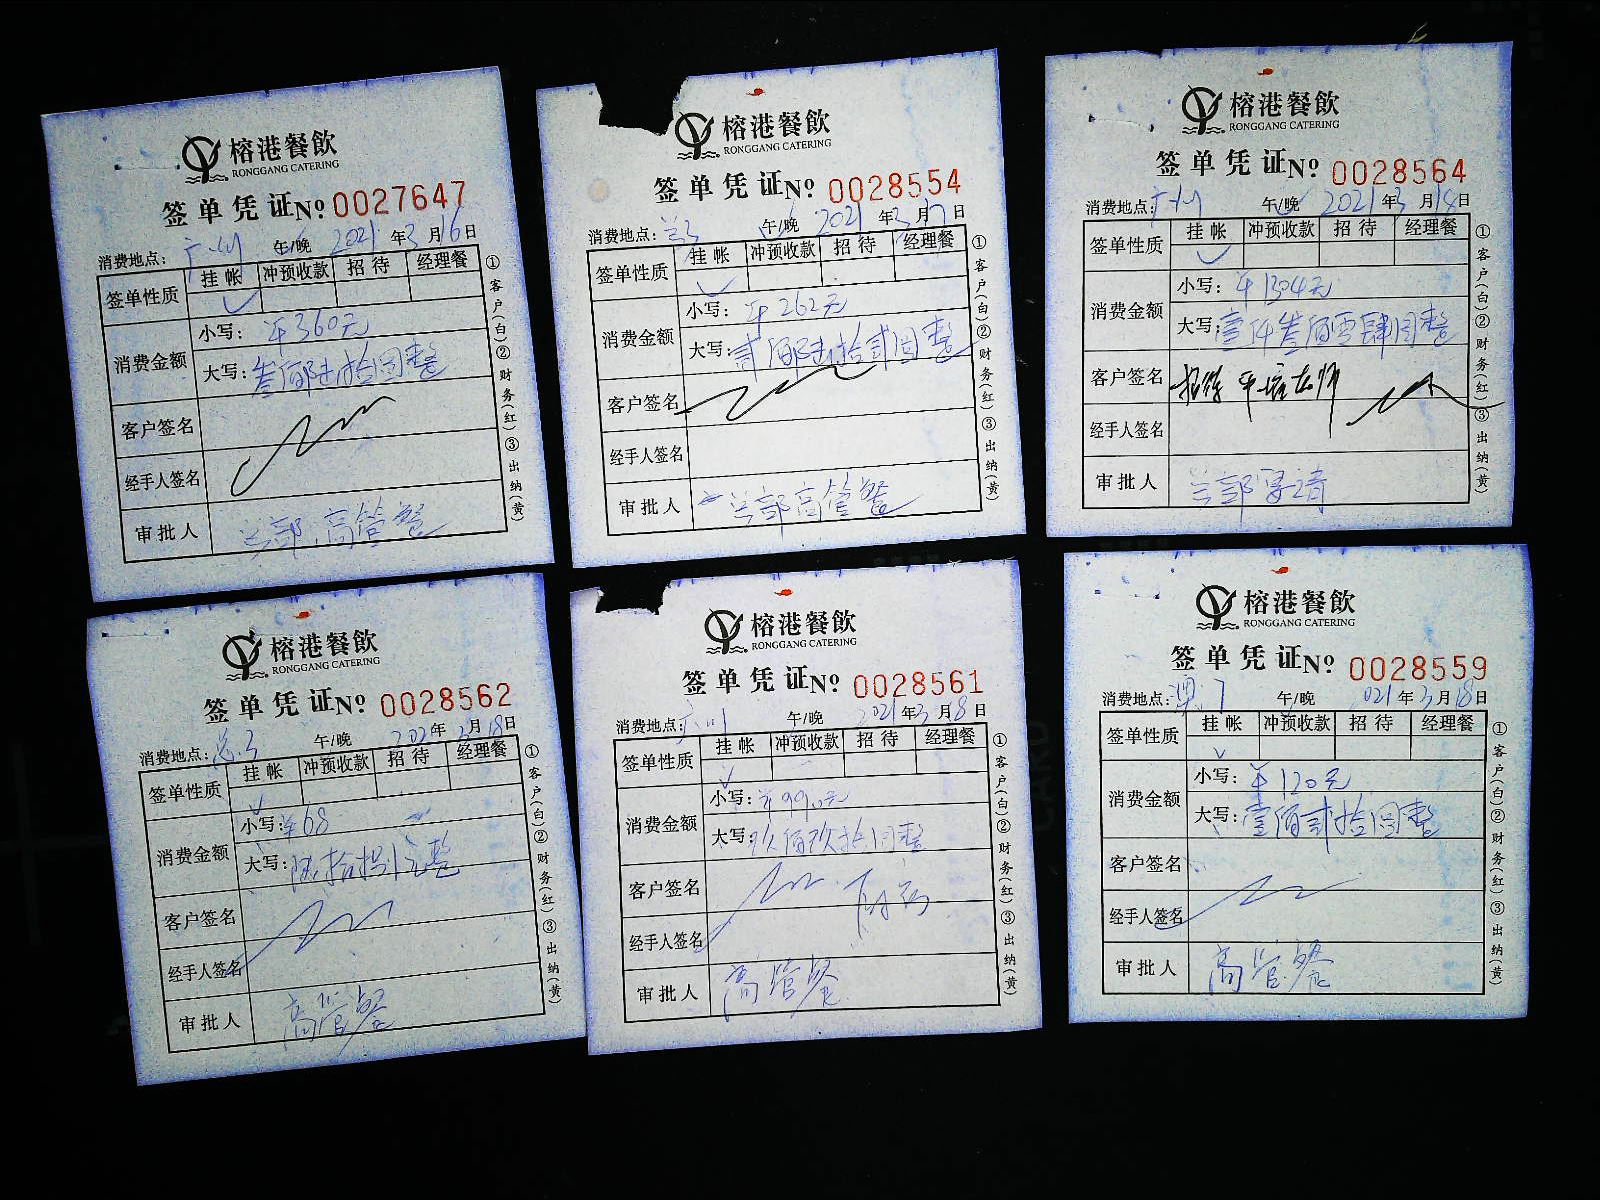 榕港餐飲
RONGGANG CATERING
签单凭证 № 0027647
消费地点：广州 午/晚 2021年3月16日
签单性质 挂帐 冲预收款 招待 经理餐
消费金额
小写：￥360元
大写：叁佰陆拾圆整
客户签名
经手人签名
审批人 总部高管餐
①客户(白)②财务(红)③出纳(黄)
榕港餐飲
RONGGANG CATERING
签单凭证 № 0028554
消费地点： 午/晚 2021年3月17日
签单性质 挂帐 冲预收款 招待 经理餐
消费金额
小写：￥262元
大写：贰佰陆拾贰圆整
客户签名
经手人签名
审批人 总部高管餐
①客户(白)②财务(红)③出纳(黄)
榕港餐飲
RONGGANG CATERING
签单凭证 № 0028564
消费地点：广州 午/晚 2021年3月14日
签单性质 挂帐 冲预收款 招待 经理餐
消费金额
小写：￥1304元
大写：壹仟叁佰零肆圆整
客户签名 招待
经手人签名
审批人 总部
①客户(白)②财务(红)③出纳(黄)
榕港餐飲
RONGGANG CATERING
签单凭证 № 0028562
消费地点： 午/晚 2021年3月18日
签单性质 挂帐 冲预收款 招待 经理餐
消费金额
小写：￥68
大写：陆拾捌元整
客户签名
经手人签名
审批人 高管餐
①客户(白)②财务(红)③出纳(黄)
榕港餐飲
RONGGANG CATERING
签单凭证 № 0028561
消费地点：广州 午/晚 2021年3月18日
签单性质 挂帐 冲预收款 招待 经理餐
消费金额
小写：￥990元
大写：玖佰玖拾圆整
客户签名
经手人签名
审批人 高管餐
①客户(白)②财务(红)③出纳(黄)
榕港餐飲
RONGGANG CATERING
签单凭证 № 0028559
消费地点：澳门 午/晚 2021年3月18日
签单性质 挂帐 冲预收款 招待 经理餐
消费金额
小写：￥120元
大写：壹佰贰拾圆整
客户签名
经手人签名
审批人 高管餐
①客户(白)②财务(红)③出纳(黄)